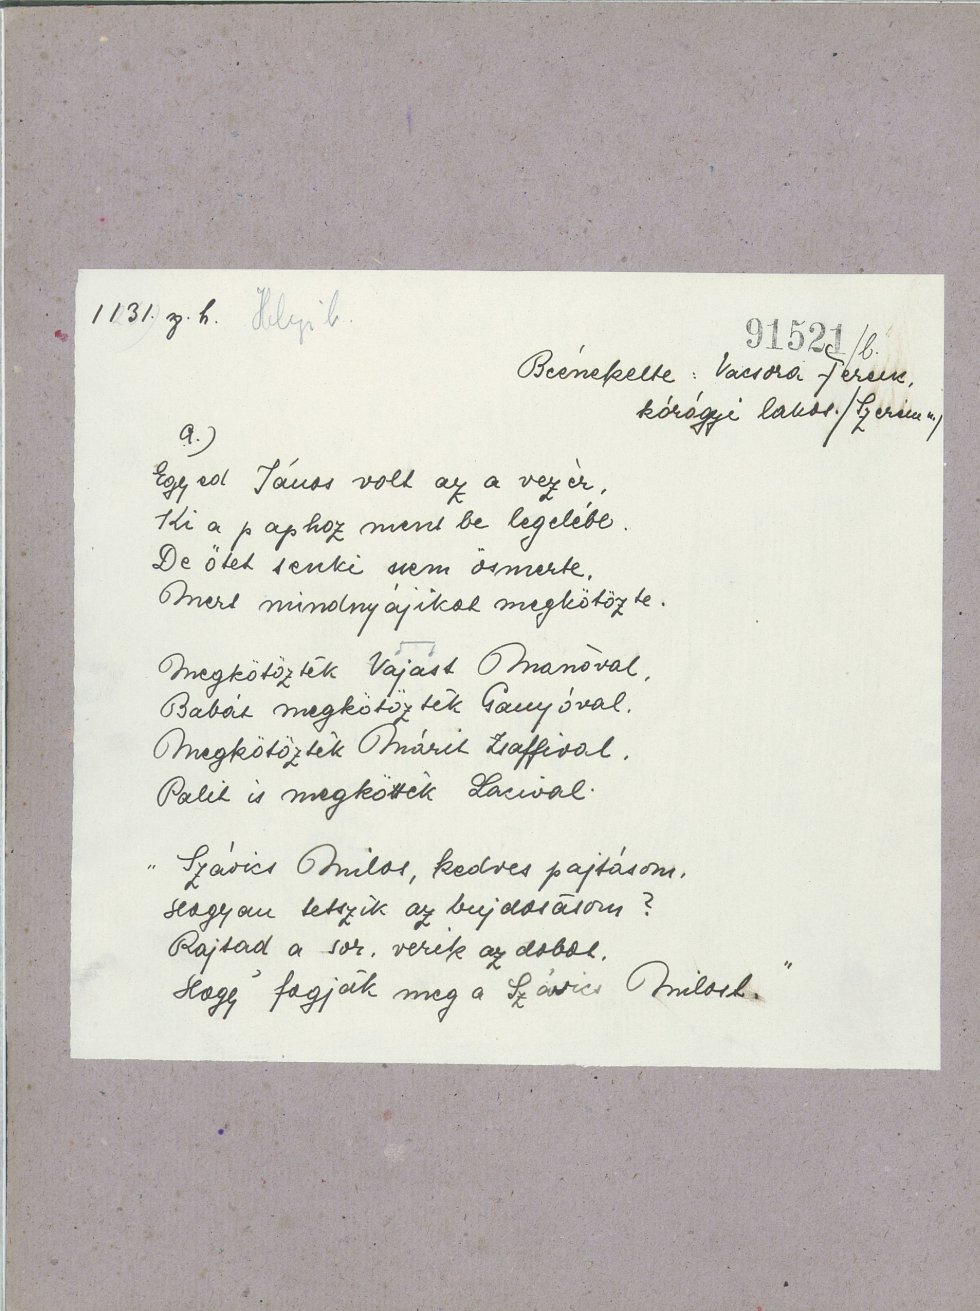 1131. z. h.
91521/b.
Beénekelte: Vacsora Teruk,
kórógyi lakos. /Szerém m./
a.)
Egyed János volt az a vezér,
Ki a paphoz ment be legelébb.
De ötet senki nem ösmerte,
Mert mindnyájikot megkötözte.
Megkötözték Vajast Manóval,
Babát megkötözték Ganyóval.
Megkötözték Márit Zsaffival,
Palit is megkötték Lacival.
„Szávics Milos, kedves pajtásom,
Hogyan tetszik az bujdosásom?
Rajtad a sor, verik az dobot,
Hogy fogják meg a Szávics Milost."